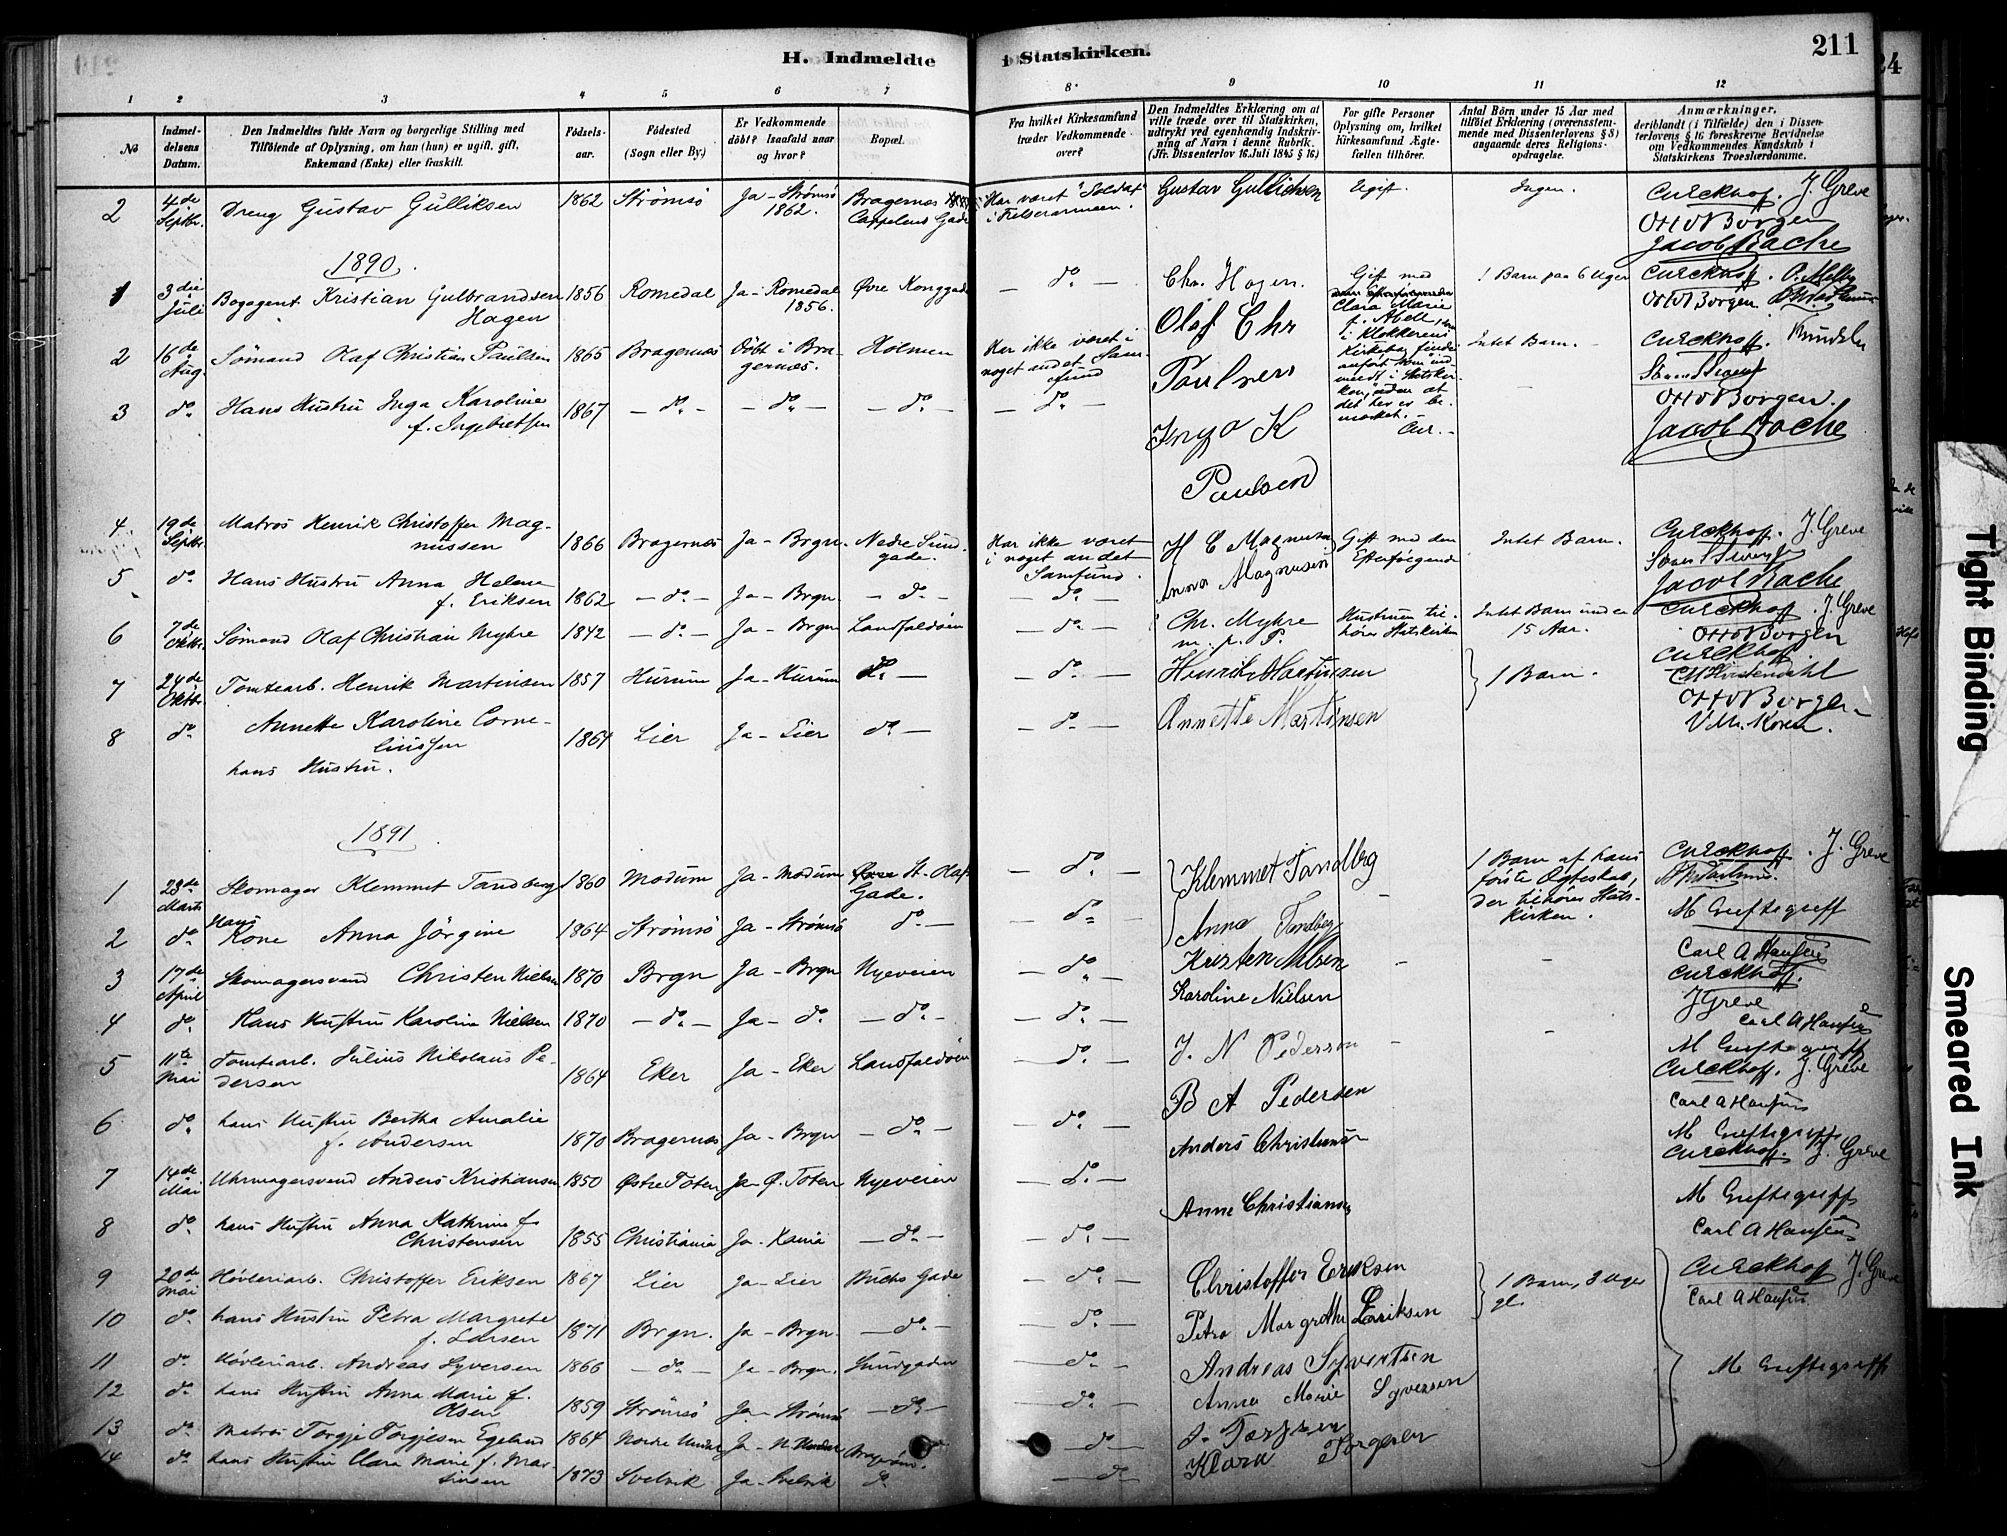 H. Indmeldte i Statskirken. 211
1 2 3 4 5 6 7 8 9 10 11 12
No
Indmel-
delsens
Datum.
Den Indmeldtes fulde Navn og borgerlige Stilling med
Tilföiende af Oplysning, om han (hun) er ugift, gift,
Enkemand (Enke) eller fraskilt.
Födsels-
aar.
Födested
(Sogn eller By.)
Er Vedkommende
döbt? Isaafald naar
og hvor?
Bopæl.
Fra hvilket Kirkesamfund
træder Vedkommende
over?
Den Indmeldtes Erklæring om at
ville træde over til Statskirken,
udtrykt ved egenhændig Indskriv-
ning af Navn i denne Rubrik.
(Jfr. Dissenterlov 16. Juli 1845 § 16)
For gifte Personer
Oplysning om, hvilket
Kirkesamfund Ægte-
fællen tilhörer.
Antal Börn under 15 Aar med
tilföiet Erklæring (overensstem-
mende med Dissenterlovens § 8)
angaaende deres Religions-
opdragelse.
Anmærkninger,
deriblandt (i Tilfælde) den i Dissen-
terlovens § 16 foreskrevne Bevidnelse
om Vedkommendes Kundskab i
Statskirkens Troeslærdomme.
2 4de Septbr. Dreng Gustav Gulliksen 1862 Strömsö Ja - Strömsö 1862. Bragernæs Cappelens Gade
Har været "Soldat" i Frelserarmeen. Gustav Gullichsen Ugift. Ingen. J. Greve
Otto Borgen
Jacob Bache
1890.
1 3die Juli Bogagent Kristian Gulbrandsen Hagen 1856 Romedal Ja - Romedal 1856. Øvre Konggade
do Chr. Hagen. Gift med Clara Marie f. Abell 1 Barn paa 6 Uger
i Klokkerens Kirkebog findes anført som indmeldt i Statskirken, uden at det her er bemærket.
Otto Borgen
2 16de Aug. Sömand Olaf Christian Paulsen 1865 Bragernæs Döbt i Bragernæs. Holmen
Har ikke været i noget andet Samfund Olaf Chr Paulsen Intet Barn.
3 do Hans Hustru Inga Karoline f. Ingebretsen 1867 do do do
do Inga K Paulsen
Otto Borgen.
Jacob Bache
4 19de Septbr. Matros Henrik Christoffer Magnussen 1866 Bragernæs Ja - Brgn. Nedre Sundgade.
Har ikke været i noget andet Samfund. H C Magnusen Gift med den Efterfølgende Intet Barn. J. Greve
5 do Hans Hustru Anna Helene f. Eriksen 1862 do Ja - Brgn. do
do Anna Magnusen Jacob Bache
6 7de Oktbr. Sömand Olaf Christian Myhre 1842 do Ja - Brgn Landfaldöen
do Chr. Myhre m. p. P. Hustruen tilhører Statskirken Intet Barn under 15 Aar. J. Greve
Otto Borgen
7 24de Oktbr. Tomtearb. Henrik Martinsen 1857 Hurum Ja - Hurum do
do Henrik Martinsen 1 Barn.
Otto Borgen
8 do Annette Karoline Corneliussen hans Hustru. 1864 Lier Ja - Lier do
do Annette Martinsen
1891
1 23de Marts Skomager Klemmet Tandberg 1860 Modum Ja - Modum St. Olafs Gade.
do Klemmet Tandberg 1 Barn af hans første Ægteskab, der tilhører Statskirken. J. Greve
2 do Hans Kone Anna Jörgine 1864 Strömsö Ja - Strömsö do
do Anna Tandberg
Carl A Hansen
3 17de April Skomagersvend Christen Nielsen 1870 Brgn Ja - Brgn Nyeveien
do Kristen Nilsen
4 do Hans Hustru Karoline Nielsen 1870 do Ja - do do
do Karoline Nielsen J Greve
Carl A Hansen
5 11te Mai Tomtearb. Julius Nikolaus Pedersen 1864 Eker Ja - Eker Landfaldöen
do J. N Pederson J. Greve
6 do hans Hustru Bertha Amalie f. Andersen 1870 Bragernæs Ja - Brgn do
do B A Pedersen Carl A Hansen
7 14de Mai Uhrmagersvend Anders Kristiansen 1850 Østre Toten Ja - Ø. Toten Nyeveien
do Anders Christiansen J. Greve
8 do hans Hustru Anna Kathrine f. Christensen 1855 Christiania Ja - Kania do
do Anne Christiansen Carl A Hansen
9 20de Mai Høvleriarb. Christoffer Eriksen 1867 Lier Ja - Lier Buchs Gade
do Christoffer Eriksen 1 Barn, 3 Uger gl. J. Greve
10 do hans Hustru Petra Margrete f. Larsen 1871 Brgn. Ja - Brgn. do
do Petra Margrethe Eriksen Carl A Hansen
11 do Høvleriarb. Andreas Syversen 1866 do Ja - Brgn. Sundgaden
do Andreas Syvertsen
12 do hans Hustru Anna Marie f. Olsen 1859 Strömsö Ja - Strömsö do
do Anna Marie Syversen
13 do Matros Torgje Torgjesen Egeland 1864
do
14 do hans Hustru Clara Marie f. Martinsen 1873 Svelvik Ja - Svelvik do
do Klara Torgersen
Tight Binding
Smeared Ink